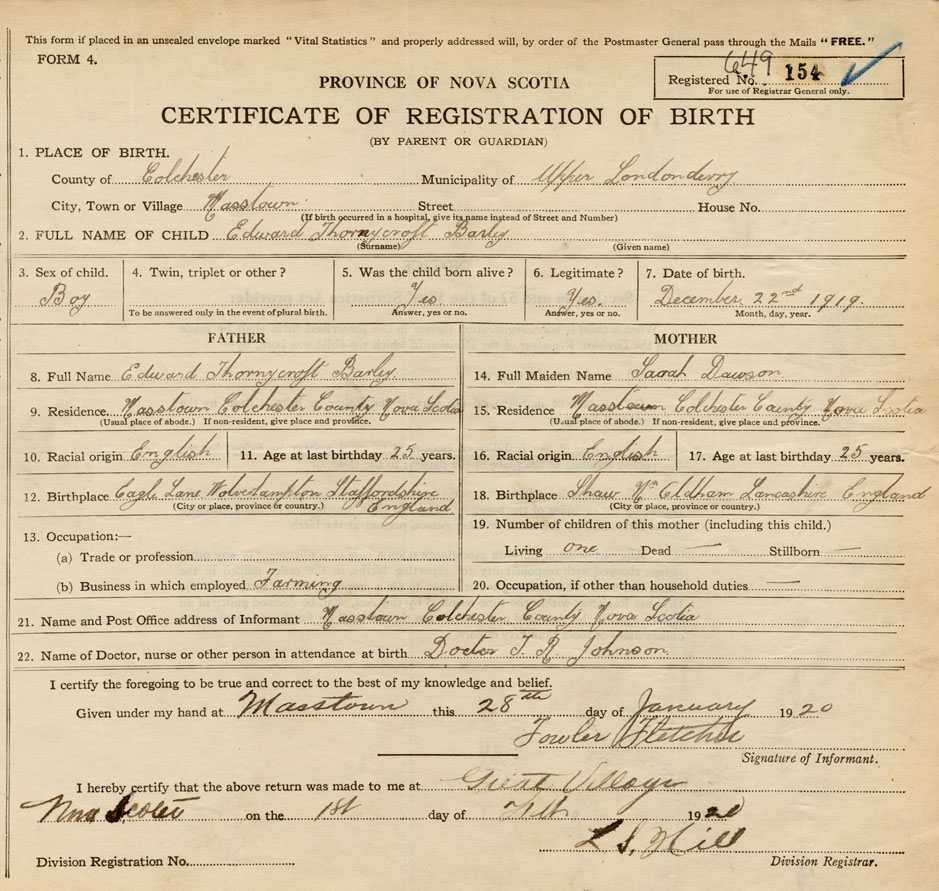 This form if placed in an unsealed envelope marked "Vital Statistics" and properly addressed will, by order of the Postmaster General pass through the Mails "FREE."
FORM 4.
649
Registered No. 154
For use of Registrar General only.
PROVINCE OF NOVA SCOTIA
CERTIFICATE OF REGISTRATION OF BIRTH
(BY PARENT OR GUARDIAN)
1. PLACE OF BIRTH.
County of Colchester Municipality of Upper Londonderry
City, Town or Village Masstown Street House No.
(If birth occurred in a hospital, give its name instead of Street and Number)
2. FULL NAME OF CHILD Edward Thornycroft Barley
(Surname) (Given name)
3. Sex of child. 4. Twin, triplet or other? 5. Was the child born alive? 6. Legitimate? 7. Date of birth.
Boy Yes. Yes. December 22nd 1919.
To be answered only in the event of plural birth. Answer, yes or no. Answer, yes or no. Month, day, year.
FATHER MOTHER
8. Full Name Edward Thornycroft Barley. 14. Full Maiden Name Sarah Dawson
9. Residence Masstown Colchester County Nova Scotia 15. Residence Masstown Colchester County Nova Scotia
(Usual place of abode.) If non-resident, give place and province. (Usual place of abode.) If non-resident, give place and province.
10. Racial origin English 11. Age at last birthday 25 years. 16. Racial origin English 17. Age at last birthday 25 years.
12. Birthplace Eagle Lane Wolverhampton Staffordshire 18. Birthplace Shaw Nr Oldham Lancashire England
England
(City or place, province or country.) (City or place, province or country.)
13. Occupation:— 19. Number of children of this mother (including this child.)
(a) Trade or profession Living one Dead — Stillborn —
(b) Business in which employed Farming 20. Occupation, if other than household duties —
21. Name and Post Office address of Informant Masstown Colchester County Nova Scotia
22. Name of Doctor, nurse or other person in attendance at birth Doctor T. R Johnson.
I certify the foregoing to be true and correct to the best of my knowledge and belief.
Given under my hand at Masstown this 28th day of January 1920
Fowler Fletcher
Signature of Informant.
I hereby certify that the above return was made to me at Great Village
Nova Scotia on the 1st day of Feb 1920
L S. Hill
Division Registration No. Division Registrar.